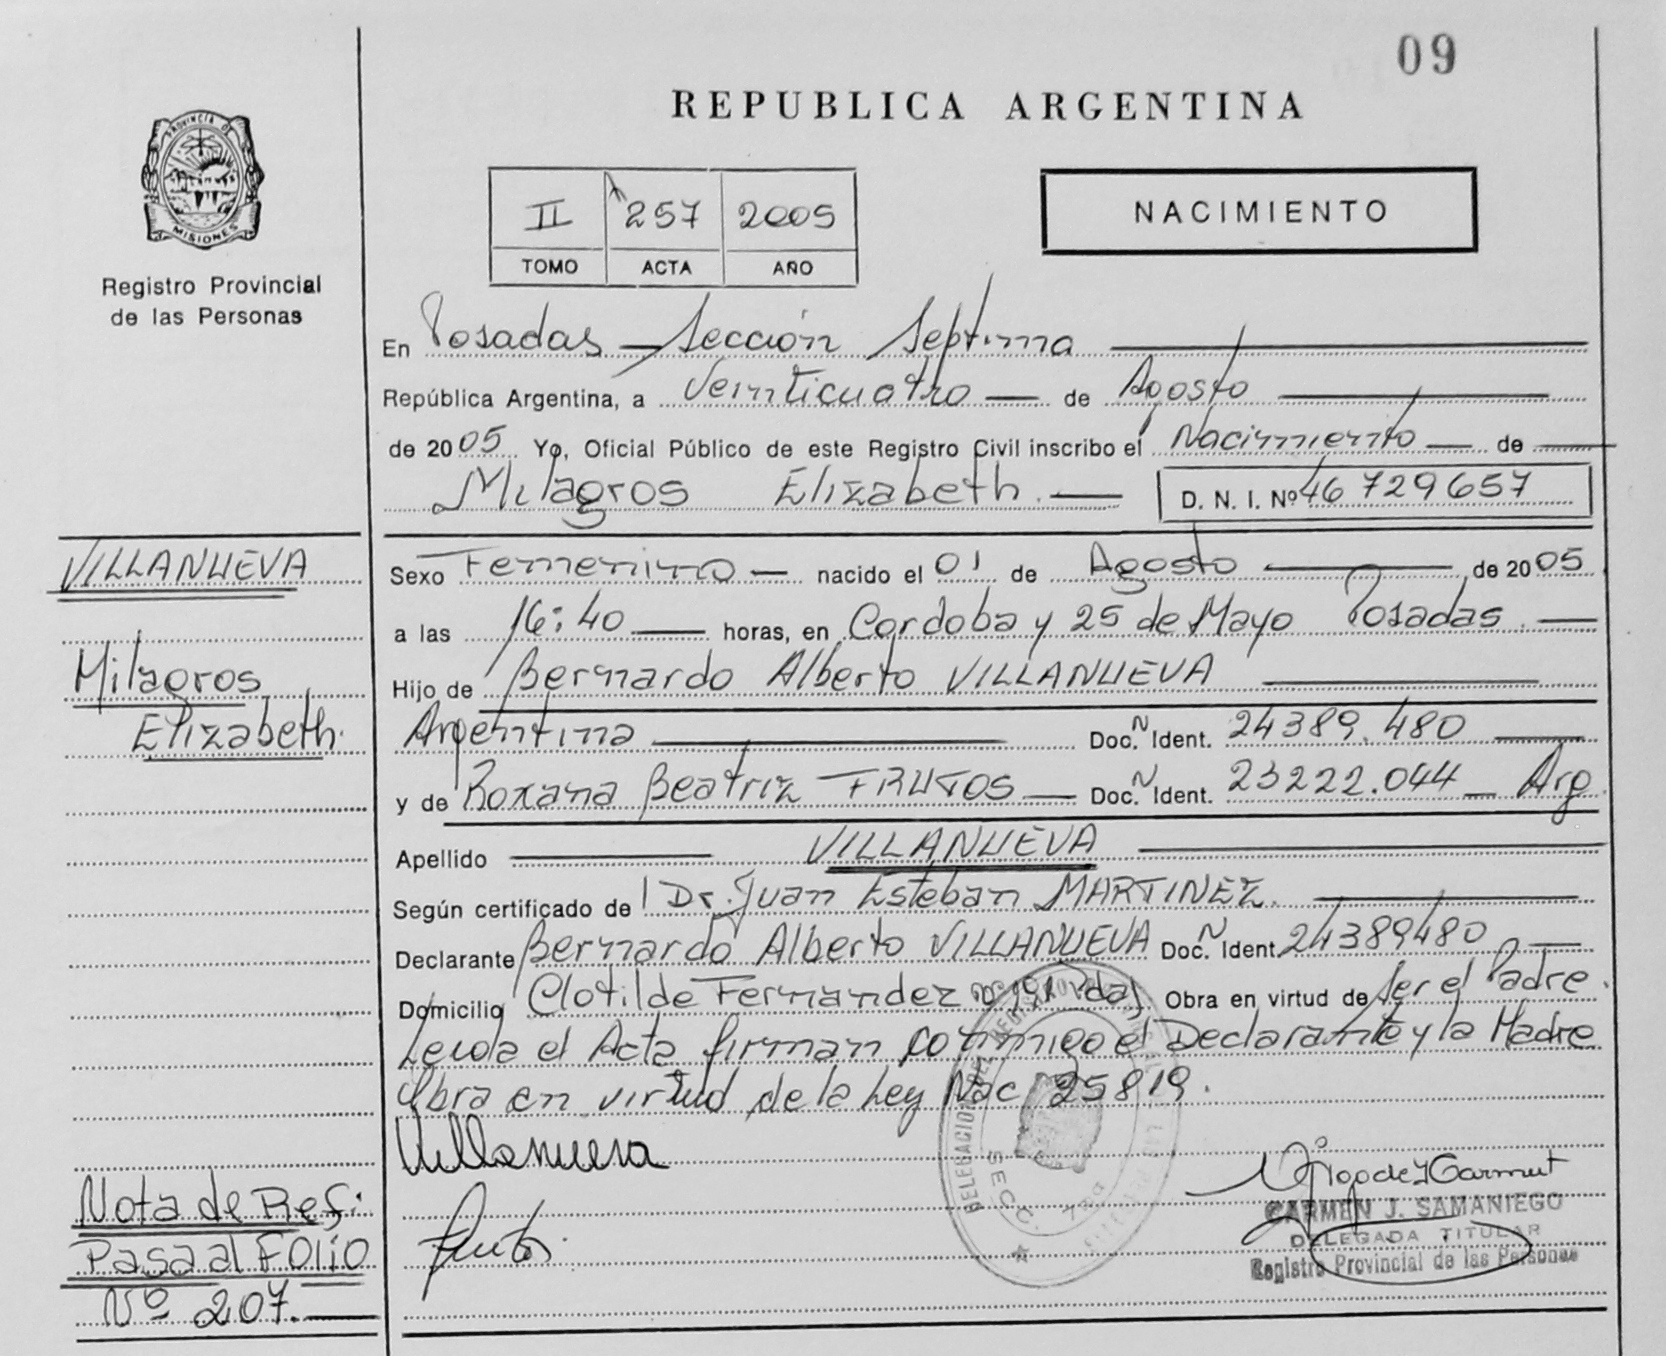 09
REPUBLICA ARGENTINA
PROVINCIA DE
MISIONES
Registro Provincial
de las Personas
II 257 2005
TOMO ACTA AÑO
NACIMIENTO
En Posadas — Sección Septima
República Argentina, a Veinticuatro — de Agosto
de 2005 Yo, Oficial Público de este Registro Civil inscribo el Nacimiento — de
Milagros Elizabeth. — D. N. I. Nº 46 729657
VILLANUEVA
Milagros
Elizabeth.
Sexo Femenino — nacido el 01 de Agosto — de 2005
a las 16:40 — horas, en Cordoba y 25 de Mayo Posadas. —
Hijo de Bernardo Alberto VILLANUEVA
Argentina — Doc. N Ident. 24389.480 —
y de Roxana Beatriz FRUTOS — Doc. N Ident. 23222.044 — Arg
Apellido — VILLANUEVA —
Según certificado de Dr. Juan Esteban MARTINEZ. —
Declarante Bernardo Alberto VILLANUEVA Doc. N Ident. 24389480 —
Domicilio Clotilde Fernandez Pdas. Obra en virtud de Ser el Padre.
Leida el Acta firman conmigo el Declarante y la Madre
Obra en virtud de la Ley Nac 25819.
Villanueva
Frutos.
DELEGACION DEL REGISTRO PROVINCIAL DE LAS PERSONAS
SECC. 7ma
CARMEN J. SAMANIEGO
DELEGADA TITULAR
Registro Provincial de las Personas
Nota de Ref:
Pasa al FOLIO
Nº 207. —